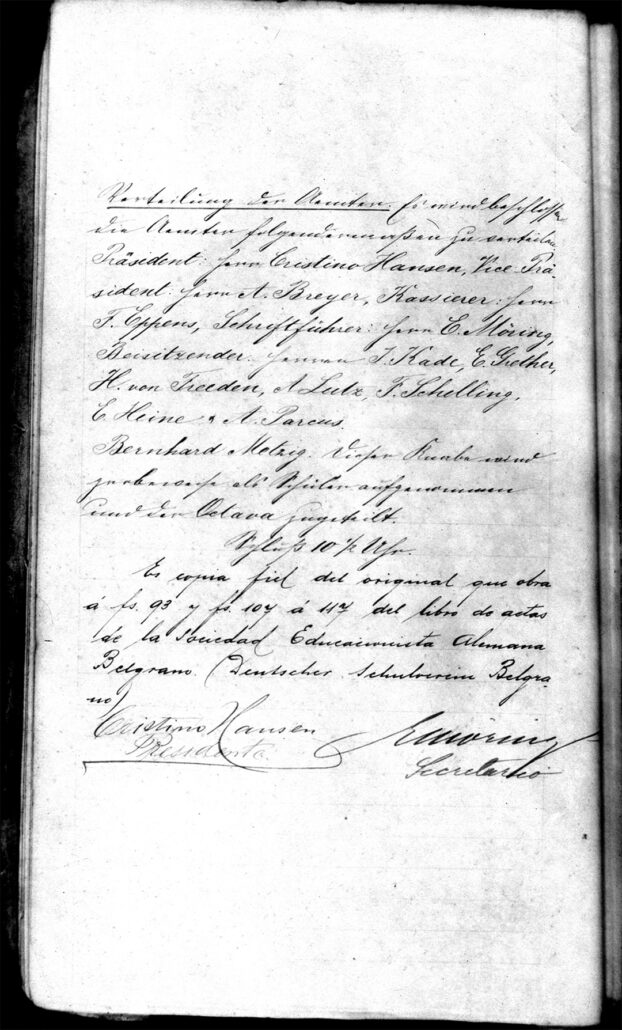 Verteilung der Aemter. Es wird beschlossen
die Aemter folgendermaßen zu verteilen:
Präsident: Herr Cristino Hansen, Vice-Prä-
sident: Herr A. Breyer, Kassierer: Herr
F. Eppens, Schriftführer: Herr E. Möring,
Beisitzender: Herren J. Kade, E. Grether,
H. von Freeden, A. Lutz, F. Schelling,
E. Heine & A. Parcus.
Bernhard Metzig. Dieser Knabe wird
probeweise als Schüler aufgenommen
und der Octava zugeteilt.
Schluß 10 ½ Uhr.
Es copia fiel del original que obra
á fs. 93 y fs. 107 á 117 del libro de actas
de la Sociedad Educacionista Alemana
Belgrano. (Deutscher Schulverein Belgra-
no)
Cristino Hansen
Presidente.
E Möring
Secretario